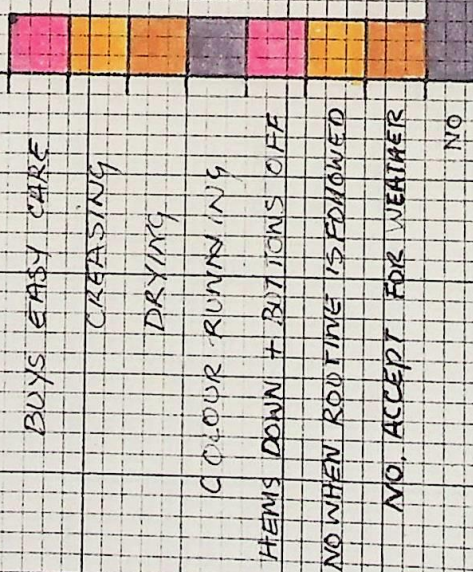 BUYS EASY CARE
CREASING
DRYING
COLOUR RUNNING
HEMS DOWN + BUTTONS OFF
NO WHEN ROUTINE IS FOLLOWED
NO, ACCEPT FOR WEATHER
NO